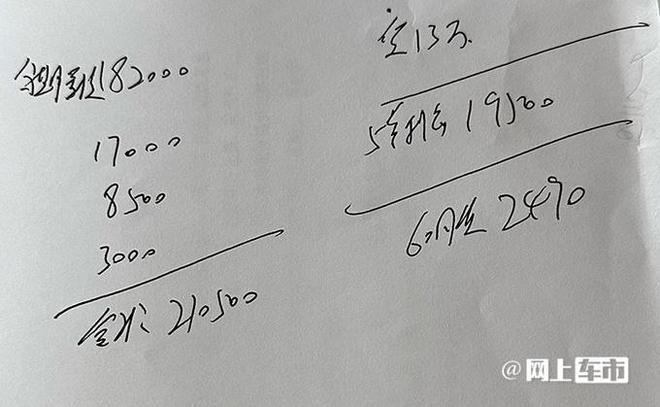 182000
17000
8500
3000
全款: 210500
贷13万
5年利息 19500
60月供 2490
@网上车市